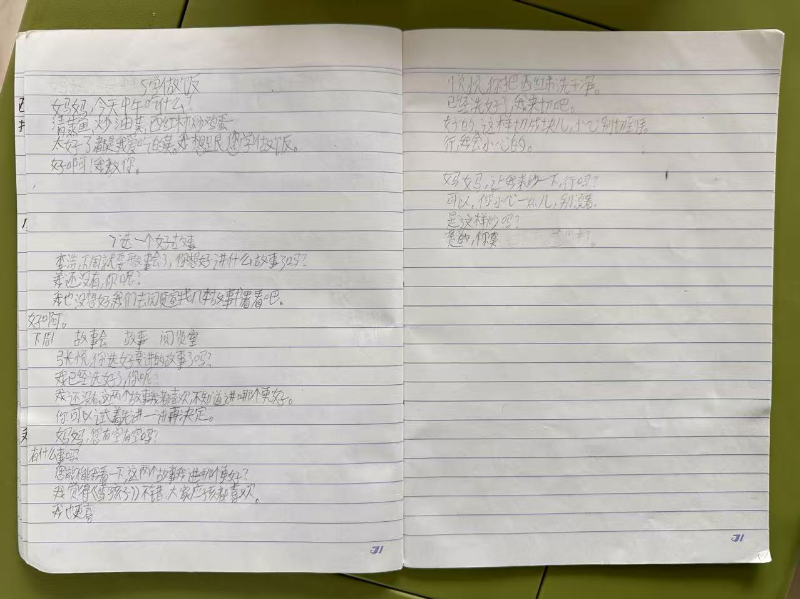 5学做饭
妈妈,今天中午吃什么?
清蒸鱼,炒油菜,西红柿炒鸡蛋
太好了都是我爱吃的菜,我想跟您学做饭。
好啊!我教你。
7选一个好故事
李浩,下周就要故事会了,你想好讲什么故事了吗?
我还没有,你呢?
我也没想好,我们去阅览室找几本故事书看看吧。
好啊。
下周 故事会 故事 阅览室
张悦,你选好要讲的故事了吗?
我已经选好了,你呢?
我还没有,这两个故事我都喜欢,不知道讲哪个更好。
你可以试着先讲一讲再决定。
妈妈,您有空吗?
有什么事吗
您能帮我看一下这两个故事我讲哪个更好?
我觉得《雪孩子》不错,大家应该都喜欢。
我也更喜
悦悦,你把西红柿洗干净。
已经洗好了,我来切吧。
好的,这样切成块儿,小心别切到手。
行,我会小心的。
妈妈,让我来炒一下,行吗?
可以,你小心一点儿,别烫着
是这样炒吗?
是的,你要
31
31